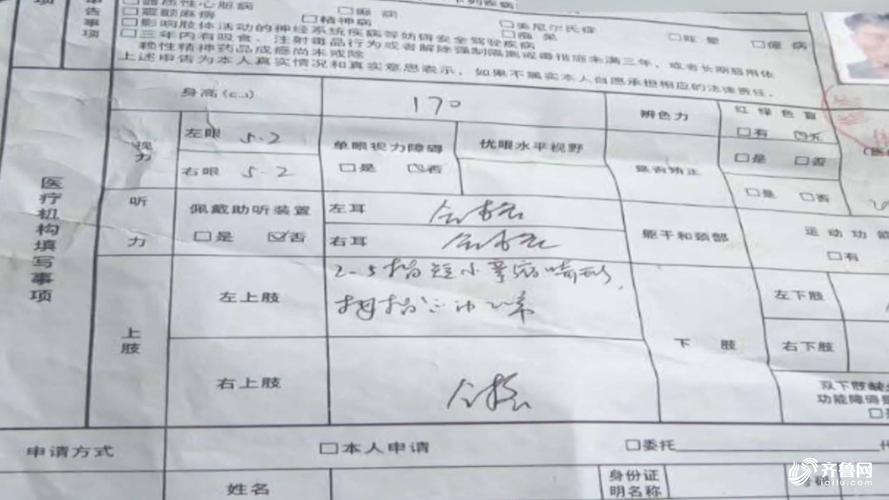 器质性心脏病 □癫痫 □美尼尔氏症 □眩晕 □癔病
□震颤麻痹 □精神病 □痴呆
□影响肢体活动的神经系统疾病等妨碍安全驾驶疾病
□三年内有吸食、注射毒品行为或者解除强制隔离戒毒措施未满三年，或者长期服用依
赖性精神药品成瘾尚未戒除
上述申告为本人真实情况和真实意思表示，如果不属实本人自愿承担相应的法律责任。
医疗机构填写事项
身高(cm) 170 辨色力 红绿色盲
□有 ☑无
视力 左眼 5.2 单眼视力障碍 优眼水平视野 是否矫正 □是 □否
右眼 5.2 □是 ☑否 □是 □否
听力 佩戴助听装置 左耳 合格 躯干和颈部 运动功能
□是 ☑否 右耳 合格 □有
上肢 左上肢 2-5指短小 下肢 左下肢
拇指 正常 右下肢
右上肢 合格 双下肢缺
功能障碍
申请方式 □本人申请 □委托
姓名 身份证
明名称
齐鲁网
iqilu.com